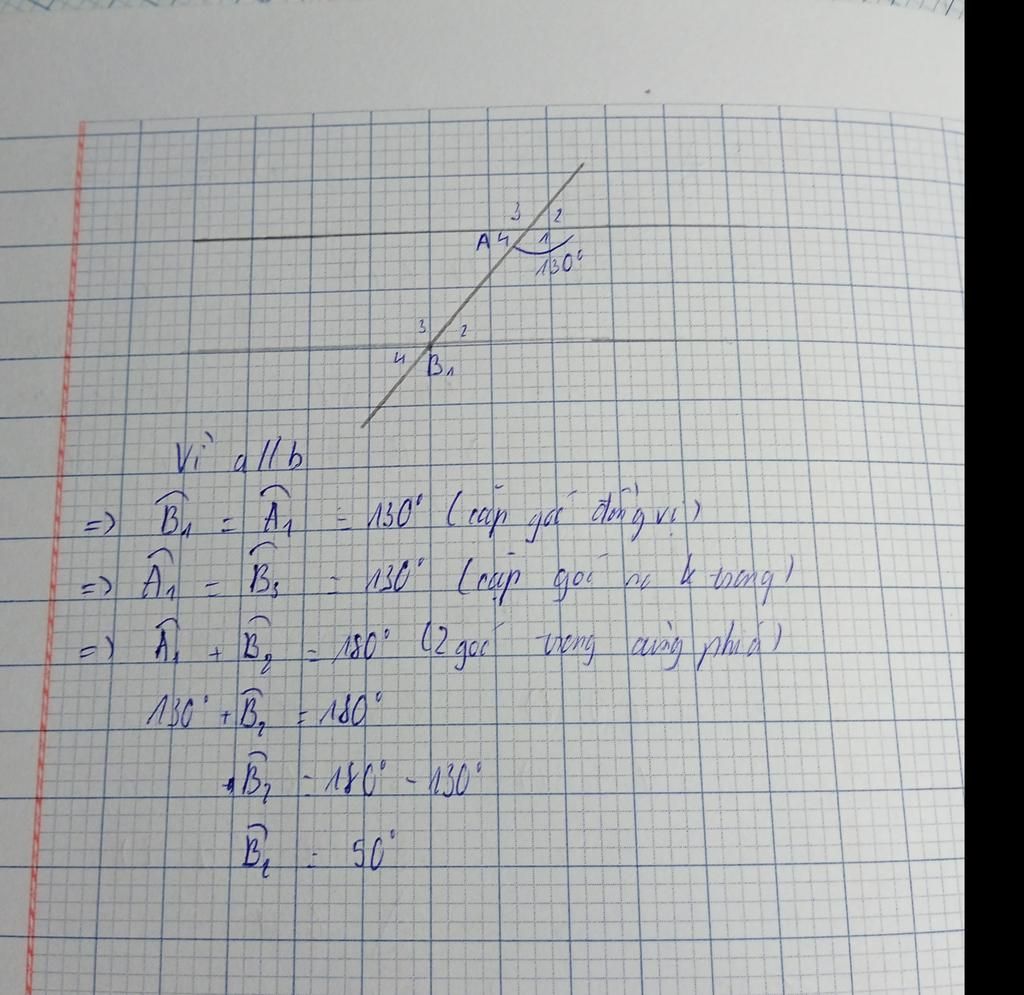 3 2
A 4 1
130°
3 2
4 B 1
Vì a//b
=> B̂₁ = Â₁ = 130° (cặp góc đồng vị)
=> Â₁ = B̂₃ = 130° (cặp góc trong)
=> Â₁ + B̂₂ = 180° (2 góc trong cùng phía)
130° + B̂₂ = 180°
B̂₂ = 180° - 130°
B̂₂ = 50°